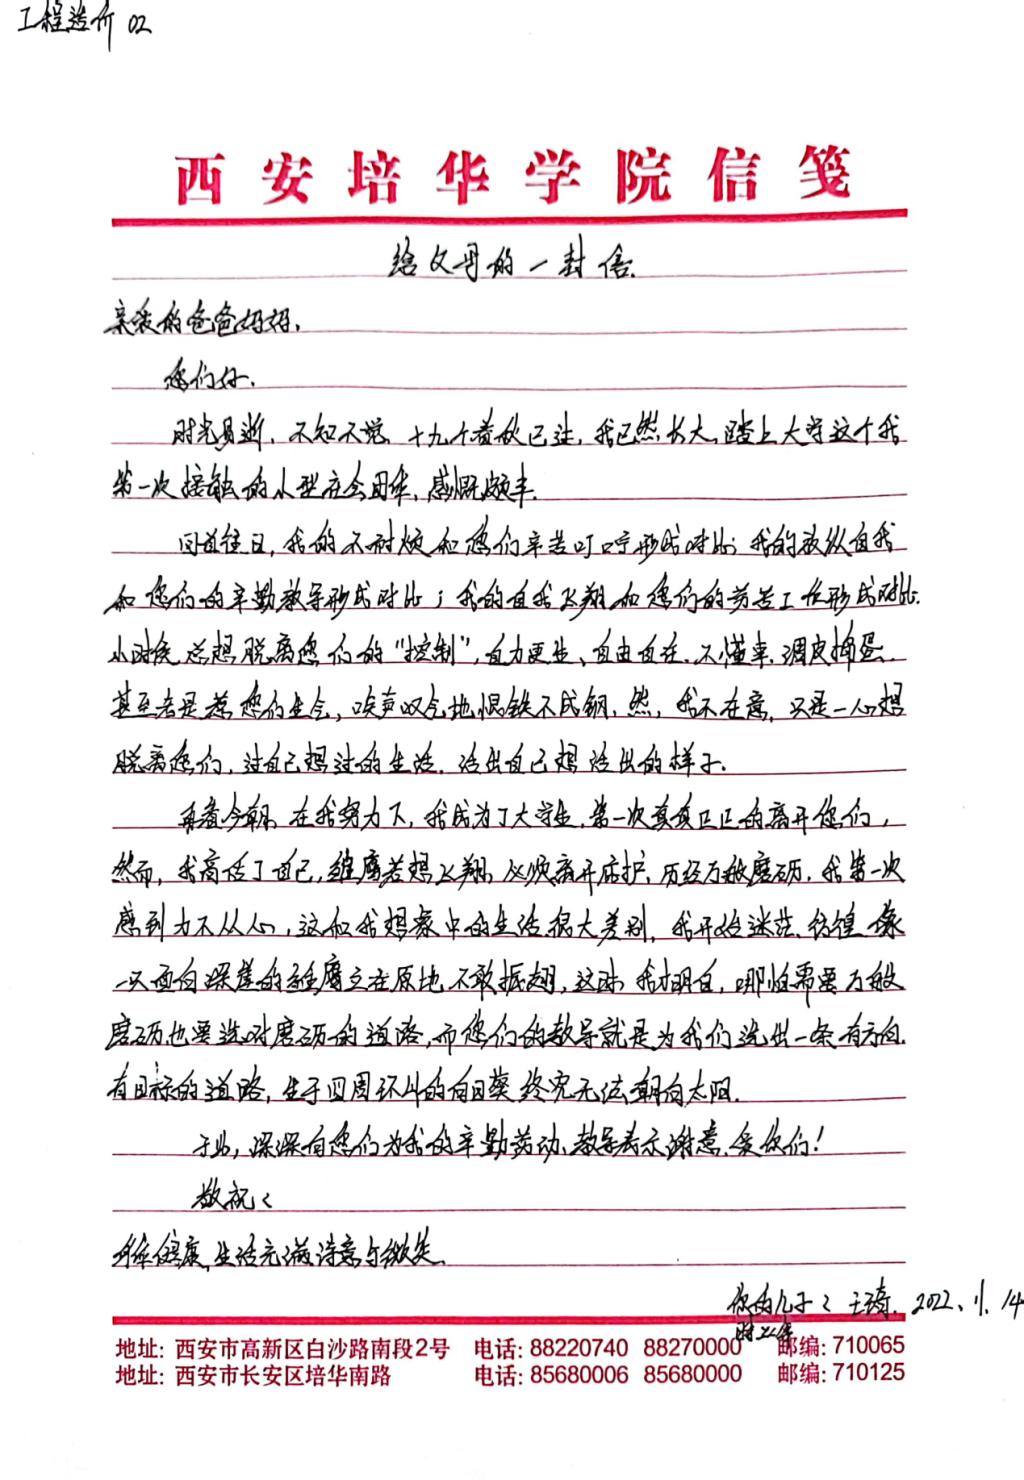 工程造价 02
西安培华学院信笺
给父母的一封信.
亲爱的爸爸妈妈.
您们好.
时光易逝, 不知不觉, 十九个春秋已过, 我已然长大, 踏上大学这个我
第一次接触的小型社会团体, 感慨颇丰.
回首往日, 我的不耐烦和您们辛苦叮咛形成对比; 我的放纵自我
和您们的辛勤教导形成对比; 我的自我飞翔和您们的劳苦工作形成对比.
小时候总想脱离您们的“控制”, 自力更生、自由自在. 不懂事, 调皮捣蛋.
甚至者是惹您们生气, 唉声叹气地恨铁不成钢, 然, 我不在意, 只是一心想
脱离您们, 过自己想过的生活. 活出自己想活出的样子.
再看今朝, 在我努力下, 我成为了大学生, 第一次真真正正的离开您们,
然而, 我高估了自己, 雄鹰若想飞翔, 必须离开庇护, 历经万般磨砺, 我第一次
感到力不从心, 这和我想象中的生活很大差别, 我开始迷茫、彷徨, 像
一只面向深崖的雄鹰立在原地, 不敢振翅, 这时, 我才明白, 哪怕需要万般
磨砺也要选对磨砺的道路, 而您们的教导就是为我们选出一条有方向.
有目标的道路, 生于四周环山的向日葵终究无法朝向太阳.
于此, 深深向您们为我的辛勤劳动、教导表示谢意, 爱你们!
敬祝:
身体健康, 生活充满诗意与微笑.
你的儿子: 王琦. 2022. 11. 14
地址: 西安市高新区白沙路南段2号 电话: 88220740 88270000 邮编: 710065
地址: 西安市长安区培华南路 电话: 85680006 85680000 邮编: 710125